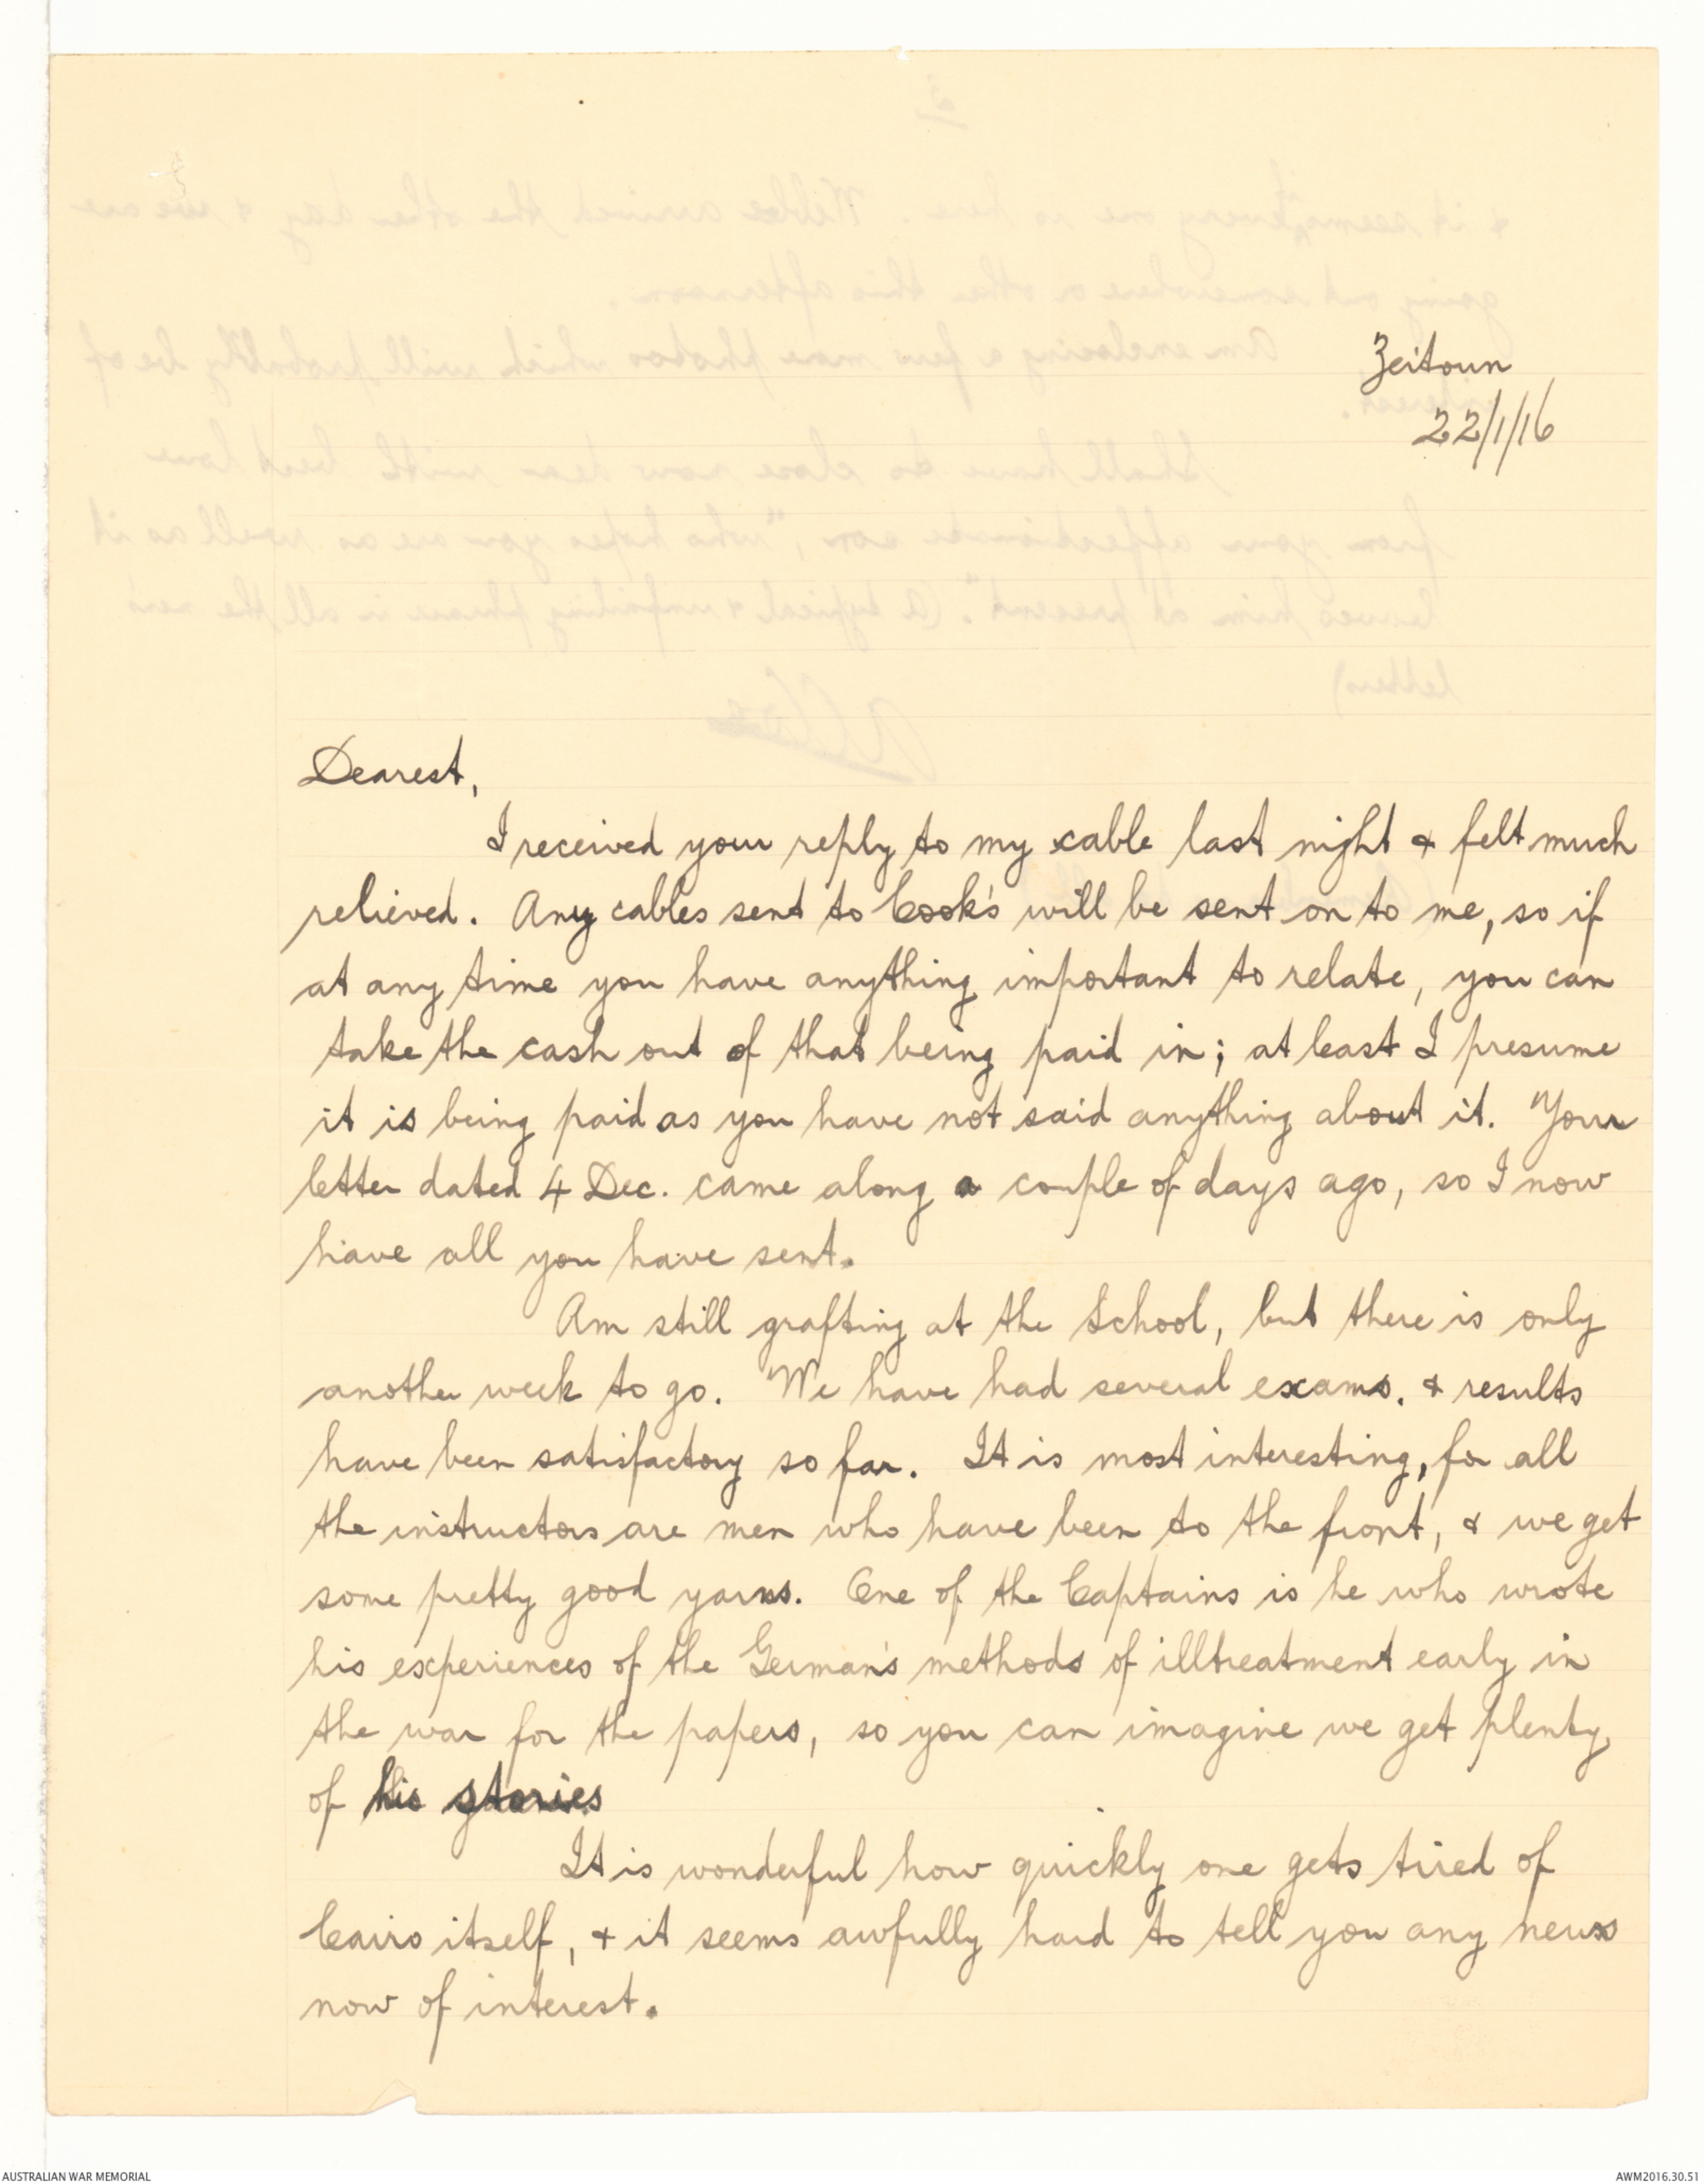 Zeitoun
22/1/16
Dearest,
I received your reply to my cable last night & felt much
relieved. Any cables sent to Cook's will be sent on to me, so if
at any time you have anything important to relate, you can
take the cash out of that being paid in; at least I presume
it is being paid as you have not said anything about it. Your
letter dated 4 Dec. came along a couple of days ago, so I now
have all you have sent.
Am still grafting at the School, but there is only
another week to go. We have had several exams. & results
have been satisfactory so far. It is most interesting, for all
the instructors are men who have been to the front, & we get
some pretty good yarns. One of the Captains is he who wrote
his experiences of the German's methods of illtreatment early in
the war for the papers, so you can imagine we get plenty
of his stories
It is wonderful how quickly one gets tired of
Cairo itself, & it seems awfully hard to tell you any news
now of interest.
AUSTRALIAN WAR MEMORIAL
AWM2016.30.51